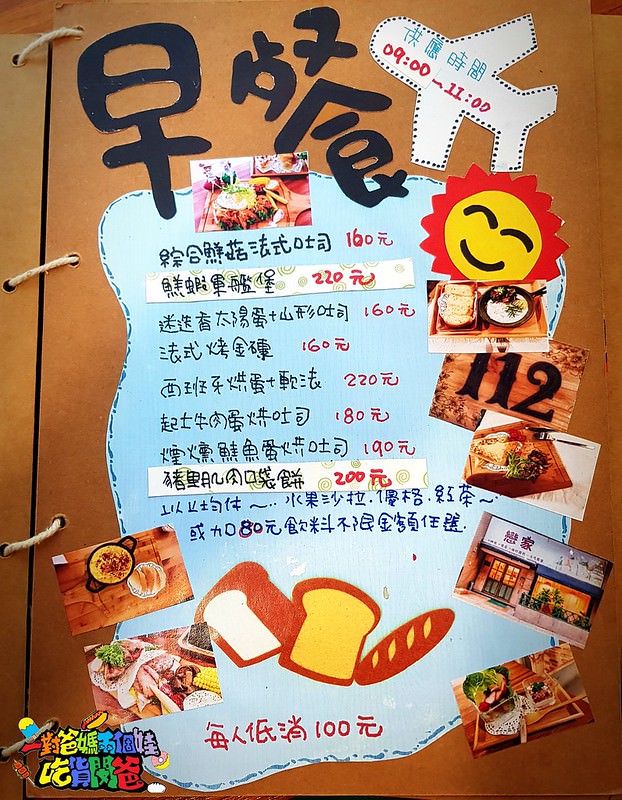 早餐
供應時間
09:00~11:00
綜合鮮菇法式吐司 160元
鮮蝦軍艦堡 220元
迷迭香太陽蛋+山形吐司 160元
法式烤金磚 160元
西班牙烘蛋+軟法 220元
起士牛肉蛋烘吐司 180元
煙燻鮭魚蛋烘吐司 190元
豬里肌肉口袋餅 200元
以上均付~..水果沙拉.優格.紅茶~
或加80元飲料不限金額任選.
112
戀家
每人低消100元
一對爸媽兩個娃
吃貨闆爸